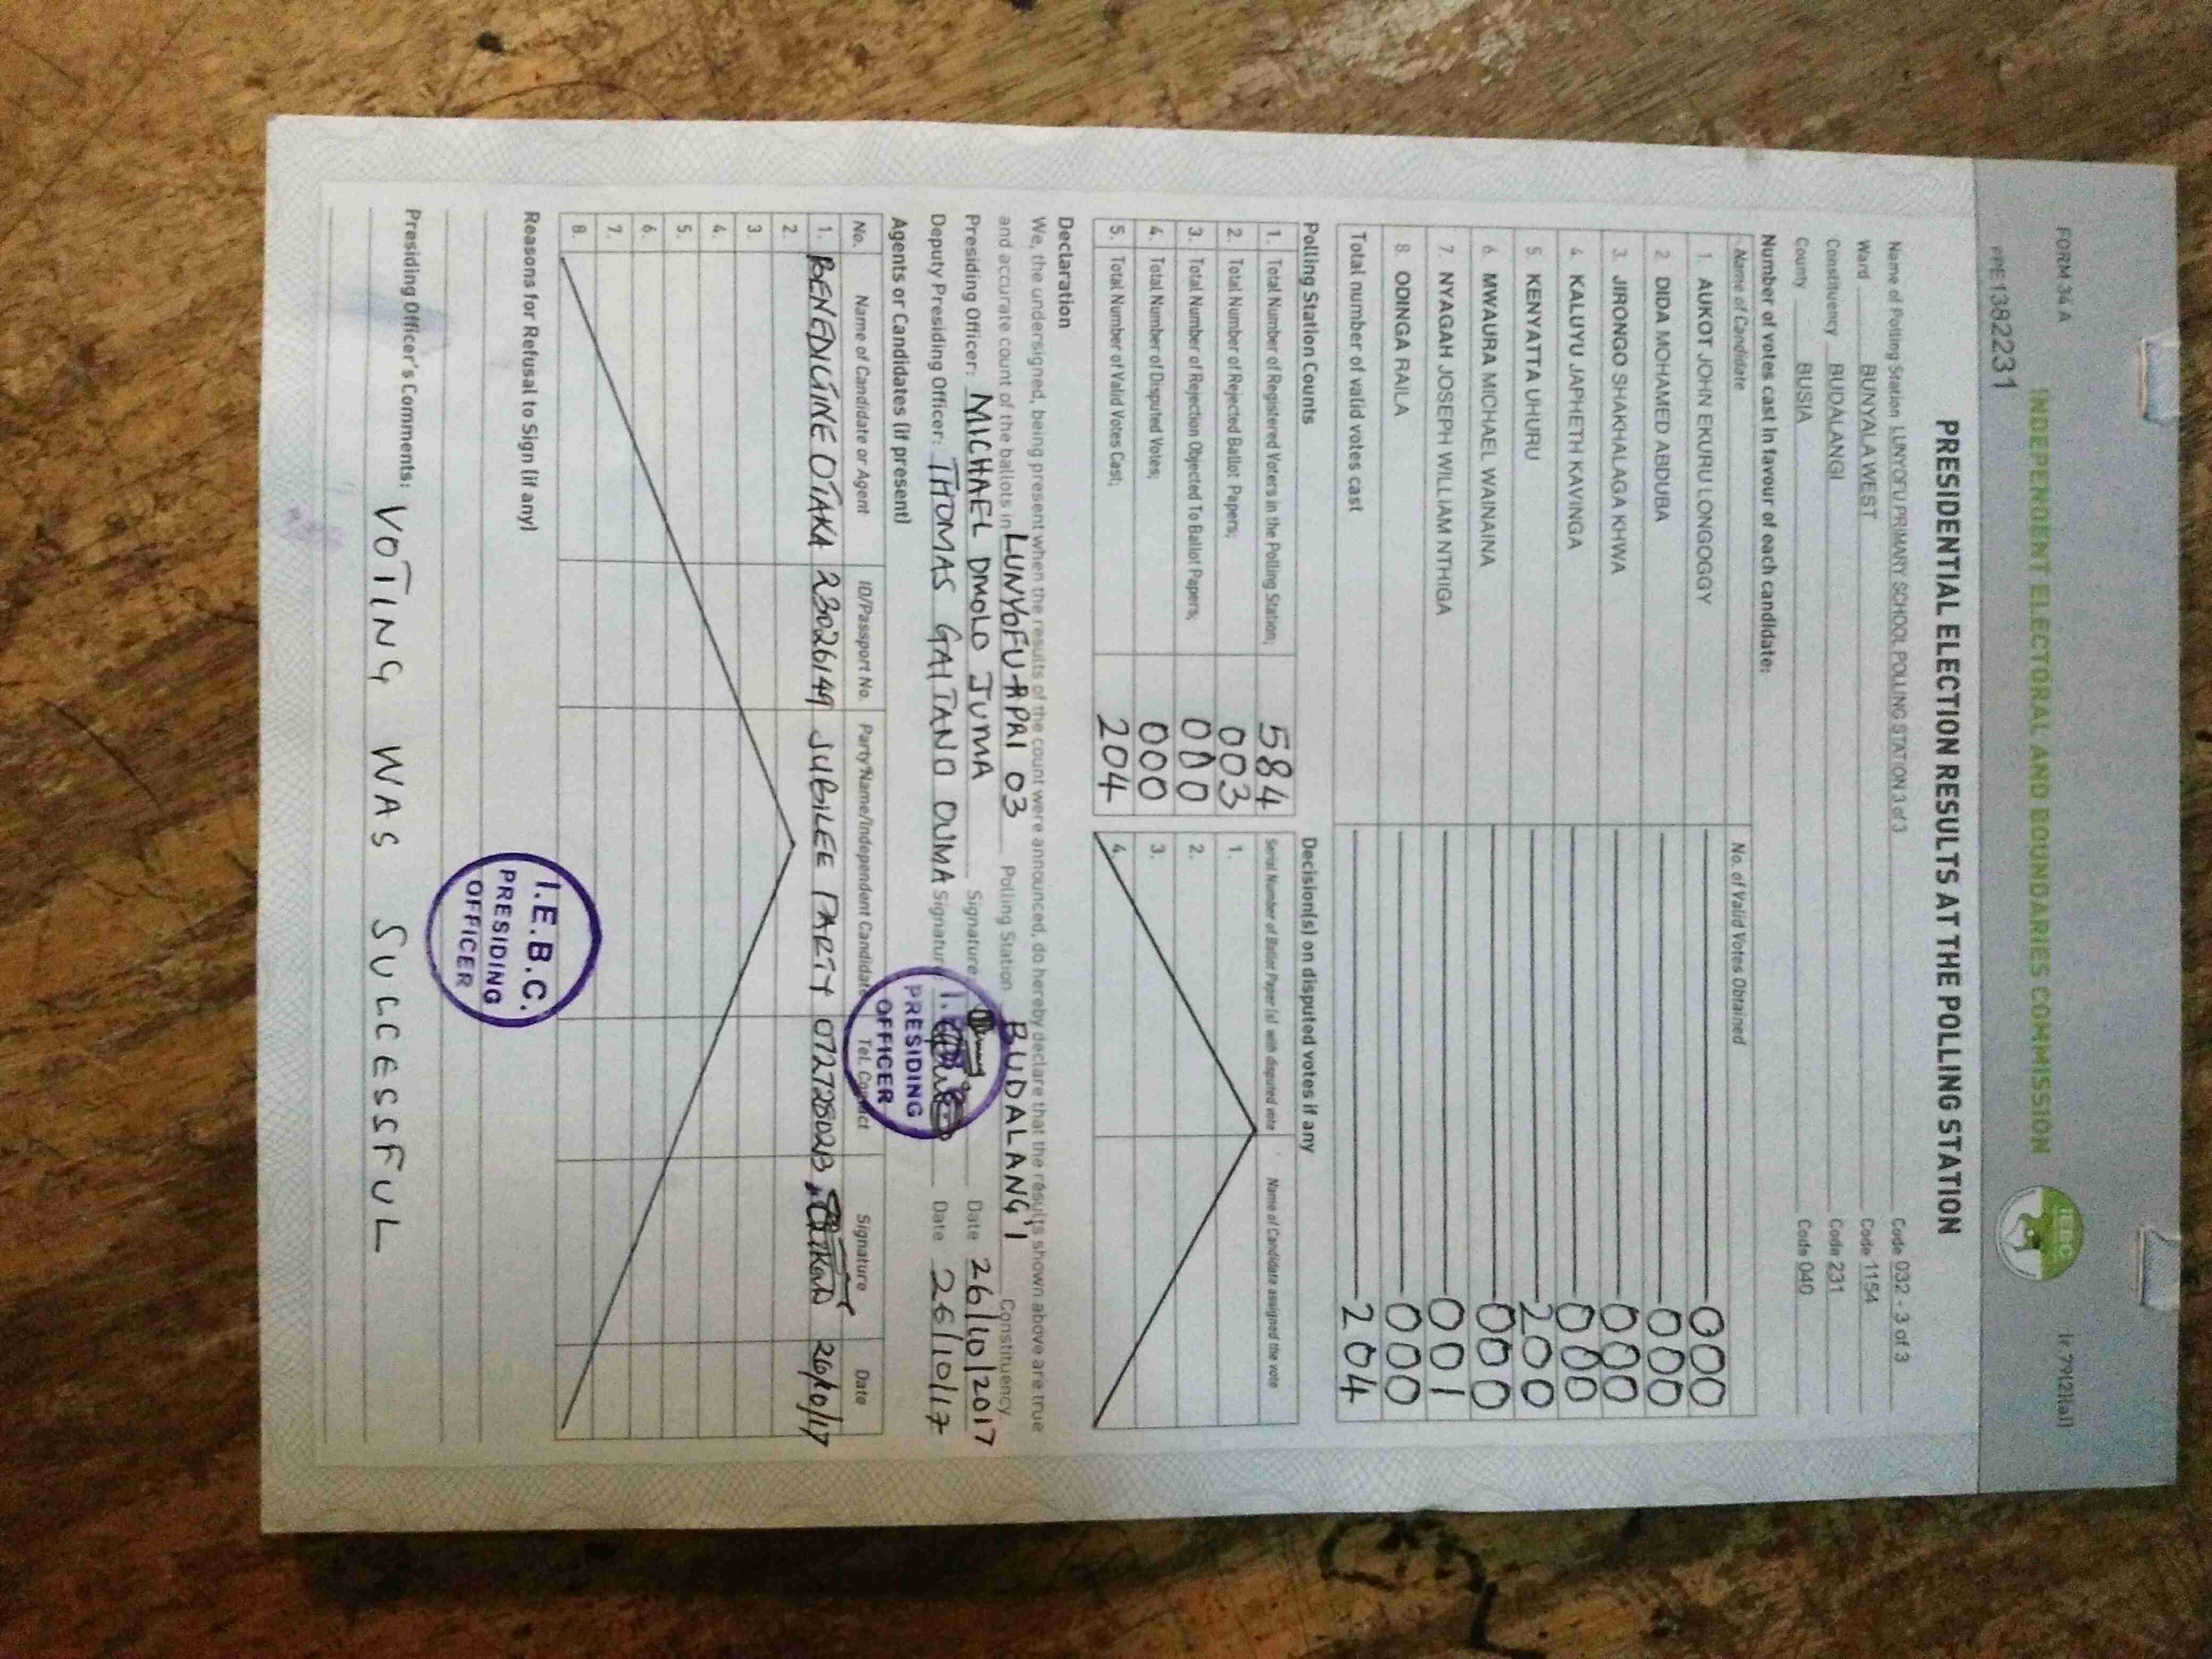 FORM 34 A
Ir 79(2)(a)]
INDEPENDENT ELECTORAL AND BOUNDARIES COMMISSION
IEBC
PRESIDENTIAL ELECTION RESULTS AT THE POLLING STATION
Name of Polling Station LUNYOFU PRIMARY SCHOOL POLLING STATION 3 of 3 Code 032 - 3 of 3
Ward BUNYALA WEST Code 1154
Constituency BUDALANGI Code 231
County BUSIA Code 040
Number of votes cast in favour of each candidate:
Name of Candidate No. of Valid Votes Obtained
1. AUKOT JOHN EKURU LONGOGGY 000
2 DIDA MOHAMED ABDUBA 000
3. JIRONGO SHAKHALAGA KHWA 000
4. KALUYU JAPHETH KAVINGA 000
5 KENYATTA UHURU 200
6. MWAURA MICHAEL WAINAINA 000
7. NYAGAH JOSEPH WILLIAM NTHIGA 001
8. ODINGA RAILA 000
Total number of valid votes cast 204
Polling Station Counts
1. Total Number of Registered Voters in the Polling Station; 584
2. Total Number of Rejected Ballot Papers; 003
3. Total Number of Rejection Objected To Ballot Papers; 000
4. Total Number of Disputed Votes; 000
5. Total Number of Valid Votes Cast; 204
Decision(s) on disputed votes if any
Serial Number of Ballot Paper (s) with disputed vote Name of Candidate assigned the vote
1.
2.
3.
4.
Declaration
We, the undersigned, being present when the results of the count were announced, do hereby declare that the results shown above are true
and accurate count of the ballots in LUNYOFU PRI 03 Polling Station BUDALANG'I Constituency.
Presiding Officer: MICHAEL OMOLO JUMA Signature Date 26/10/2017
Deputy Presiding Officer: THOMAS GAITANO OUMA Signature Date 26/10/17
I.E.B.C.
PRESIDING
OFFICER
Agents or Candidates (if present)
No. Name of Candidate or Agent ID/Passport No. Party Name/Independent Candidate Tel. Contact Signature Date
1. BENEDICTINE OTAKA 23026149 JUBILEE PARTY 26/10/17
2.
3.
4.
5.
6.
7.
8.
Reasons for Refusal to Sign (if any)
I.E.B.C.
PRESIDING
OFFICER
Presiding Officer's Comments: VOTING WAS SUCCESSFUL